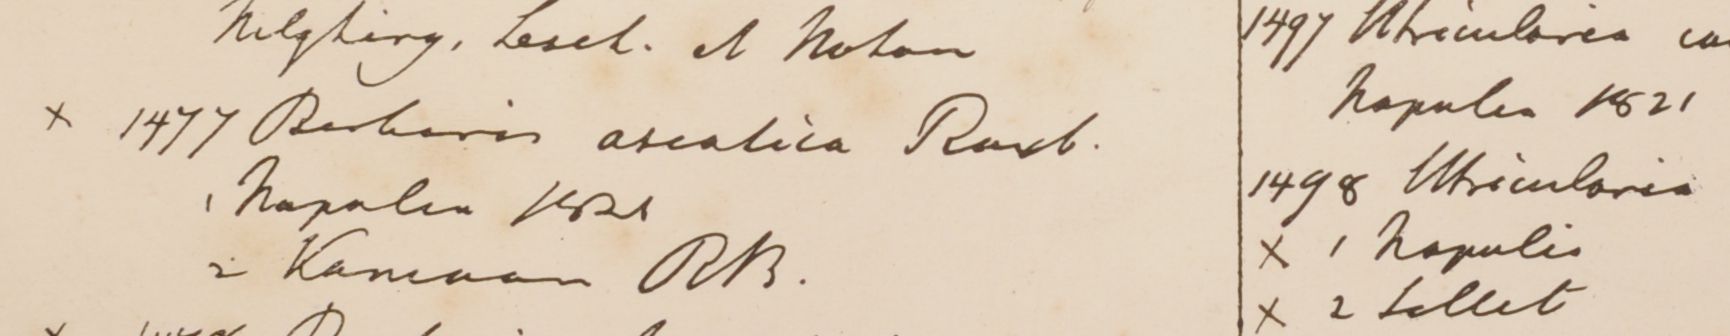 Nilghiry, Lesch. et Noton
x 1477 Berberis asiatica Roxb.
1 Napalia 1821
2 Kamaon RB.
1497 Utricularia
Napalia 1821
1498 Utricularia
x 1 Napalia
x 2 Sillet